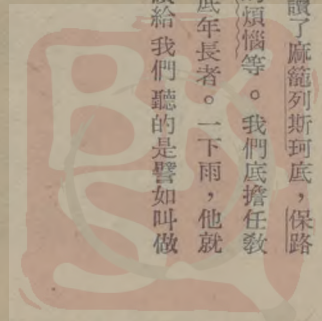 讀了麻籠列斯珂底，保路
煩惱等。我們底擔任教
底年長者。一下雨，他就
給我們聽的是譬如叫做